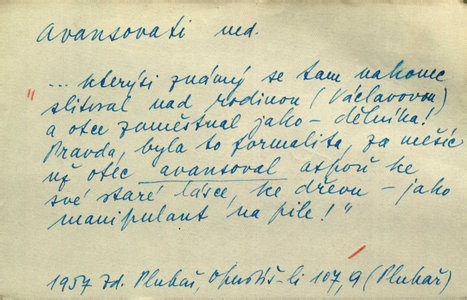 avansovati ned.
"... kterýsi známý se tam nakonec
slitoval nad rodinou (Václavovou)
a otce zaměstnal jako – dělníka!
Pravda, byla to formalita, za měsíc
už otec avansoval aspoň ke
své staré lásce, ke dřevu – jako
manipulant na pile!"
1957 Zd. Pluhař, Opustíš-li 107,9 (Pluhař)